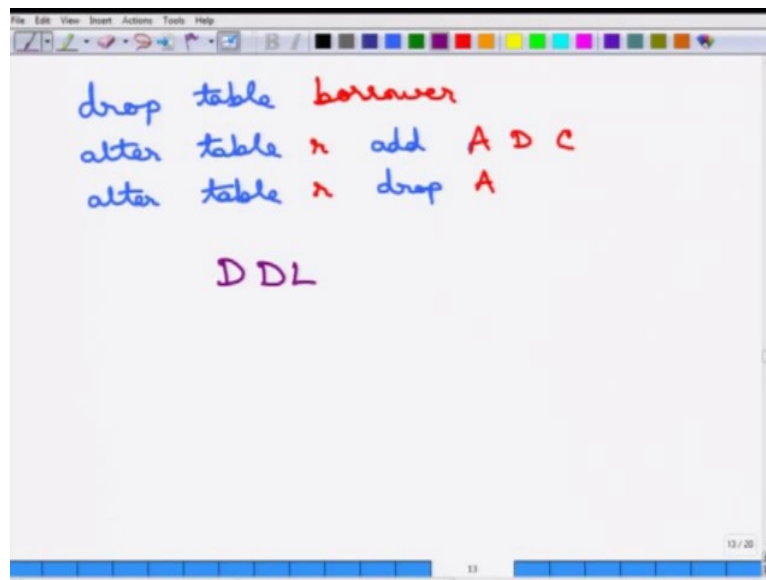 File Edit View Insert Actions Tools Help
B I
drop table borrower
alter table r add A D C
alter table r drop A
DDL
13 / 20
13